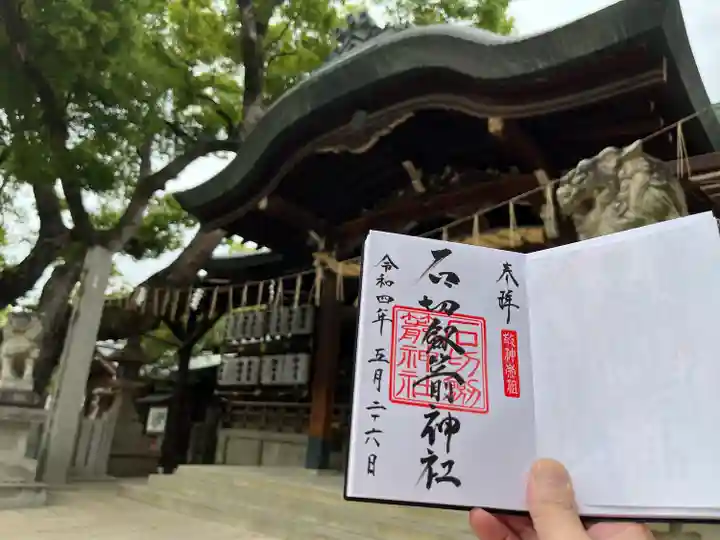 奉拝
敬神崇祖
石切劔箭神社
石切劔
箭神社
令和四年五月二十六日